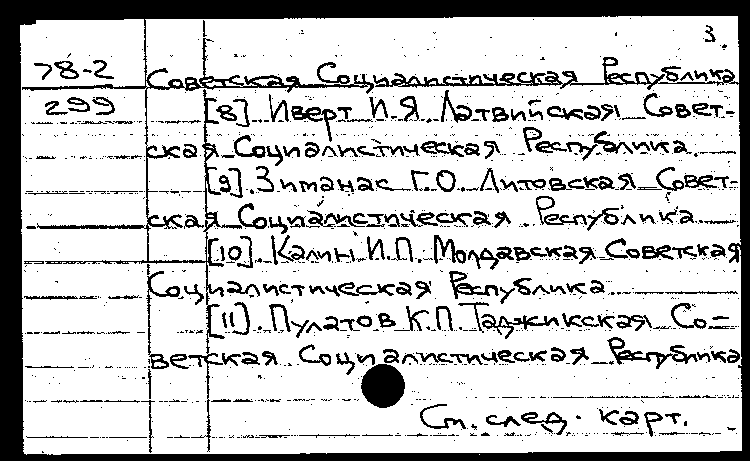 3
78-2 Советская Социалистическая Республика
299 [8]. Иверт И.Я. Латвийская Совет-
ская Социалистическая Республика.
[9]. Зиманас Г.О. Литовская Совет-
ская Социалистическая Республика
[10]. Калин И.П. Молдавская Советская
Социалистическая Республика
[11]. Пулатов К.П. Таджикская Со-
ветская Социалистическая Республика
См. след. карт.